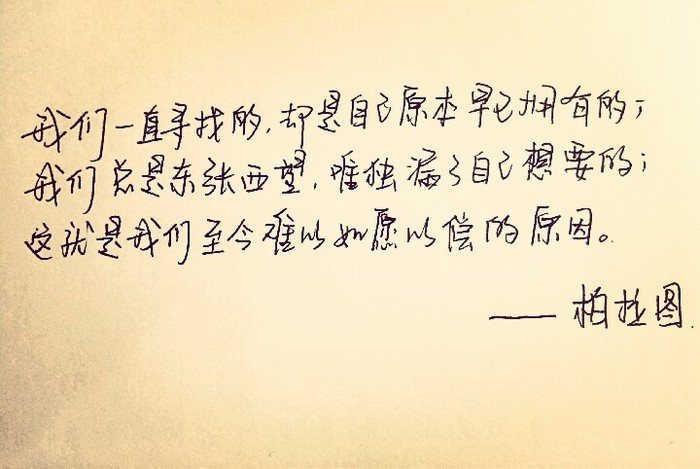 我们一直寻找的,却是自己原本早已拥有的;
我们总是东张西望,唯独漏了自己想要的;
这就是我们至今难以如愿以偿的原因。
—— 柏拉图.